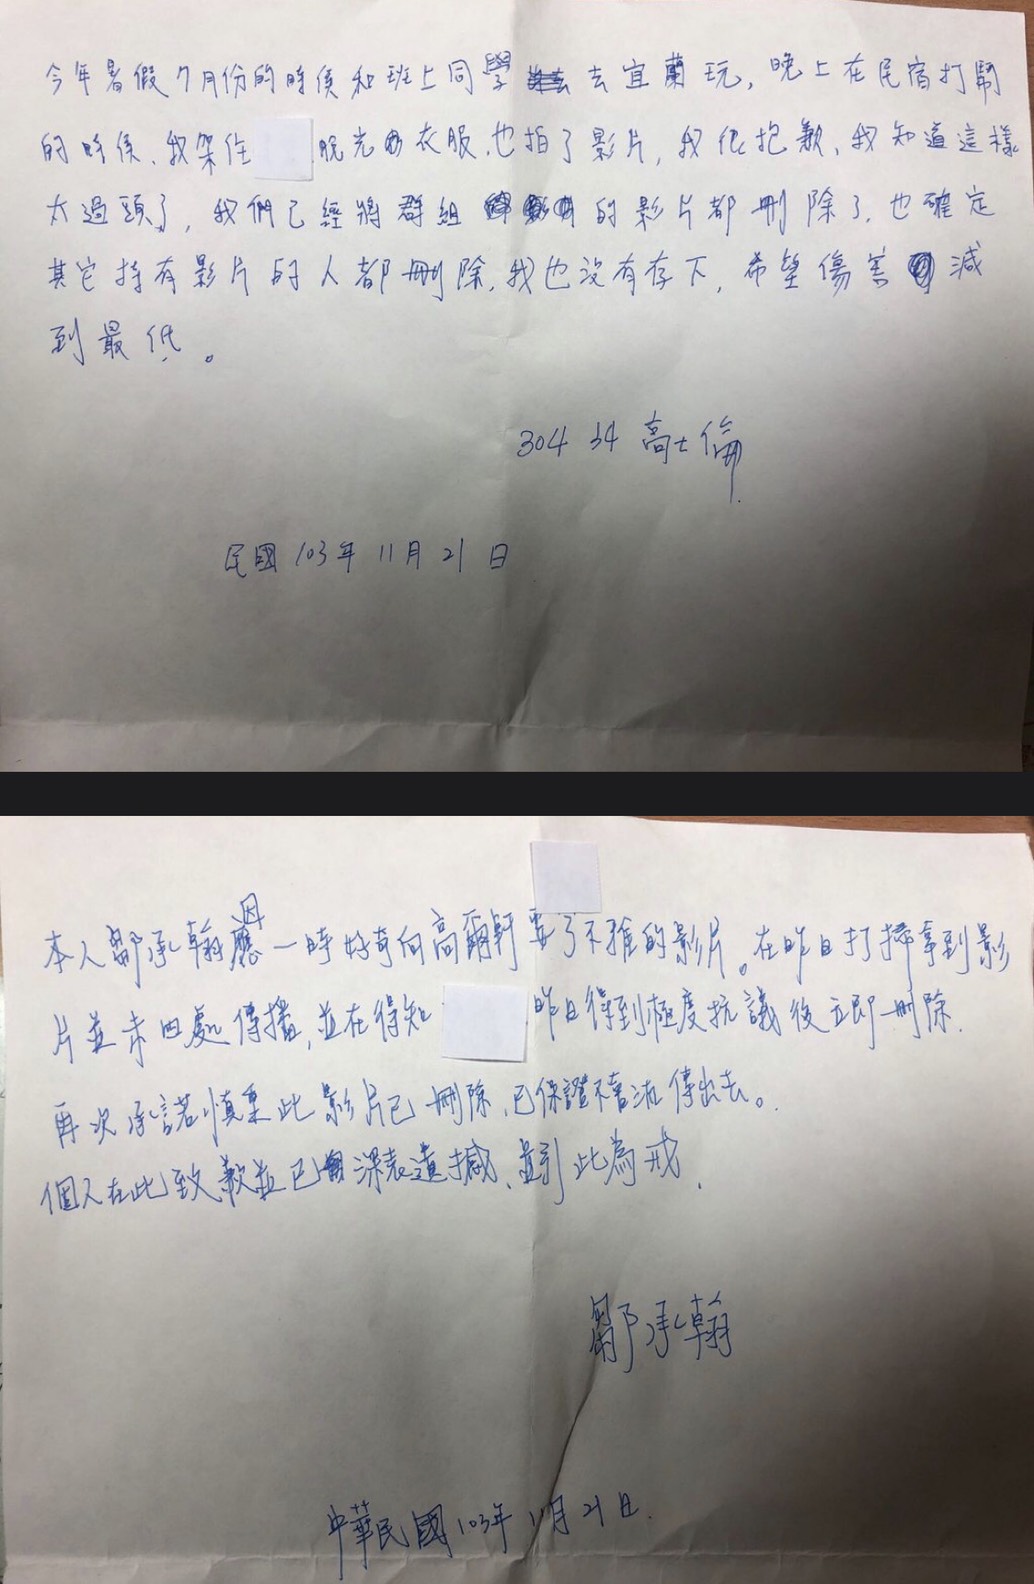 今年暑假7月份的時候和班上同學去宜蘭玩,晚上在民宿打鬧
的時候,我架住 脫光衣服,也拍了影片,我很抱歉,我知道這樣
太過頭了,我們已經將群組的影片都刪除了,也確定
其它持有影片的人都刪除,我也沒有存下,希望傷害減
到最低。
304 34 高士倫
民國103年11月21日
本人鄒承翰因應一時好奇向高爾軒要了不雅的影片。在昨日打掃拿到影
片並未四處傳播,並在得知 昨日得到極度抗議後立即刪除.
再次承諾慎重此影片已刪除,已保證不會流傳出去。
個人在此致歉並已深表遺憾、並引此為戒.
鄒承翰
中華民國103年11月21日.